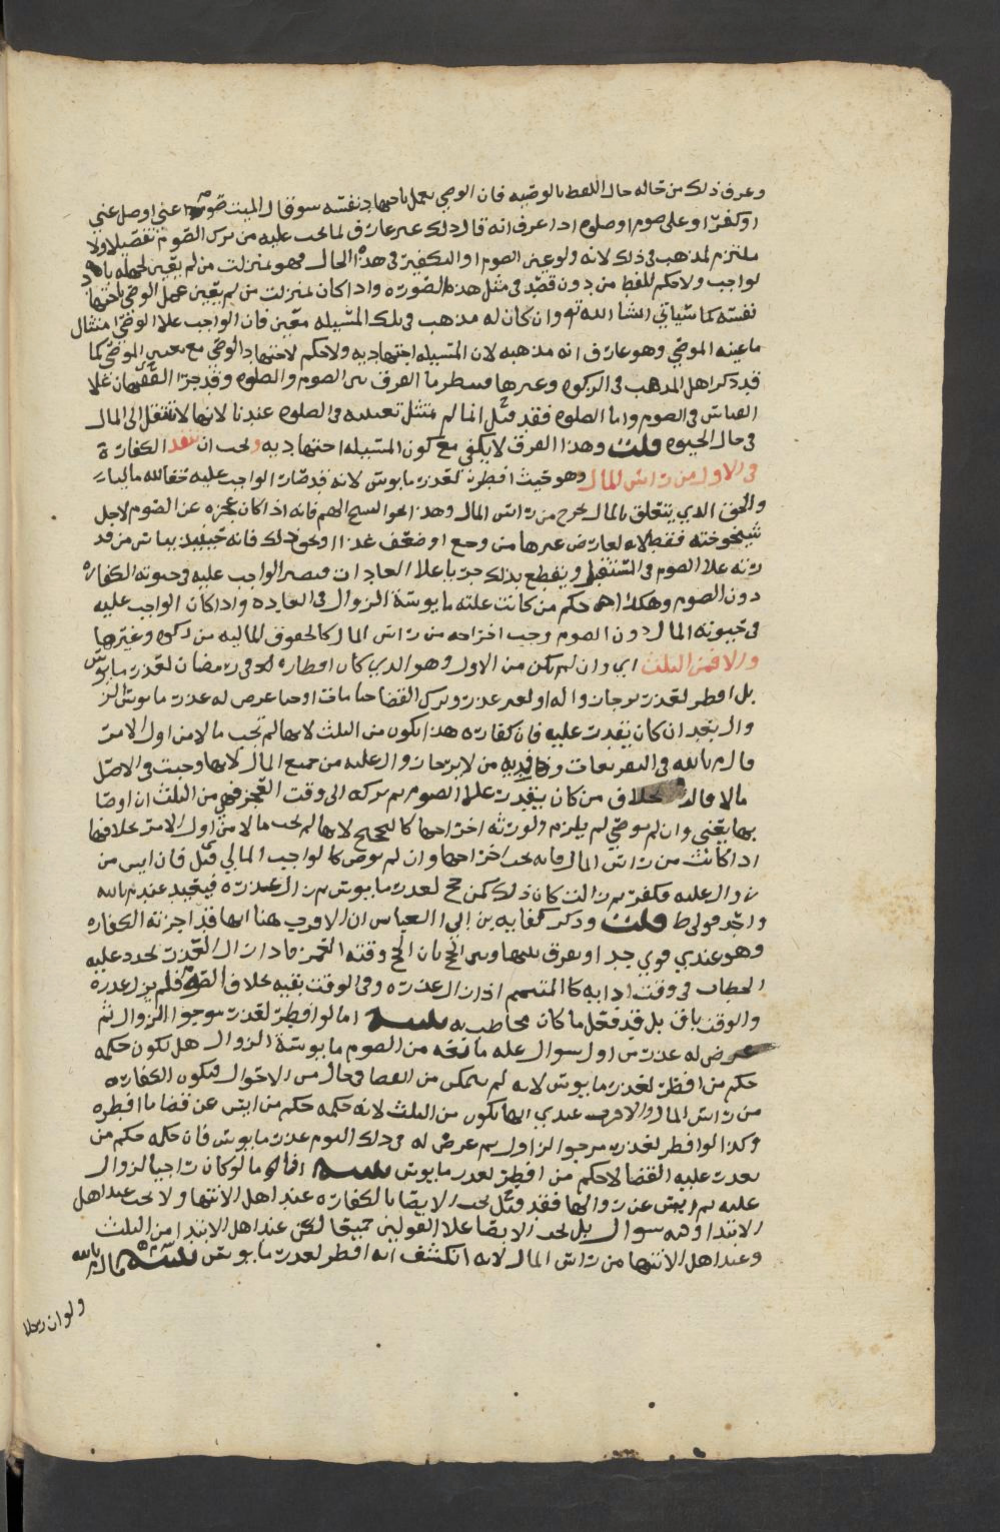 وعرف ذلك من حاله حال اللفظ بالوصيه فان الوصي يعمل باجتهاد نفسه سوى قال الميت صوموا عني او صل عني
او كفر او على صوم او صلوه اذا عرف انه قال ذلك غير عارف لما يجب عليه من ترك الصوم تفصيلا ولا
ملتزم لمذهب في ذلك لانه ولو عين الصوم او التكفير في هذه الحال فهو بمنزلت من لم يعين لجهله
لواجب ولا حكم للفظ من دون قصد في مثل هذه الصوره واذا كان بمنزلت من لم يعين عمل الوصي باجتهاد
نفسه كما سياتي انشا الله تع وان كان له مذهب في تلك المسيله معين فان الواجب علا الوصي امتثال
ما عينه الموصي وهو عارف انه مذهبه لان المسيله اجتهاديه ولا حكم لاجتهاد الوصي مع تعيين الموصي كما
قد ذكر اهل المذهب في الزكوه وغيرها فينظر ما الفرق بين الصوم والصلوه وقد جرا الفقيهان علا
القياس في الصوم واما الصلوه فقد قيل انما لم يمتثل تعيينه في الصلوه عندنا لانها لا تنتقل الى المال
في حال الحيوه قلت وهذا الفرق لا يكفي مع كون المسيله اجتهاديه ويجب ان تنفذ الكفارة
في الاول من راس المال وهو حيث افطر لعذر مايوس لانه قد صار الواجب عليه حقا لله ماليا
والحق الذي يتعلق بالمال يخرج من راس المال وهذا نحو الشيخ الهم فانه اذا كان عجزه عن الصوم لاجل
شيخوخته فقط لا لعارض غيرها من وجع او ضعف غذا او نحو ذلك فانه حينيذ يياس من قد
رته علا الصوم في المستقبل ويقطع بذلك جريا علا العادات فيصير الواجب عليه في حيوته الكفاره
دون الصوم وهكذا حكم من كانت علته مايوسة الزوال في العاده واذا كان الواجب عليه
في حيوته المال دون الصوم وجب اخراجه من راس المال كالحقوق الماليه من زكوه وغيرها
والا فمن الثلث اي وان لم يكن من الاول وهو الذي كان افطاره في رمضان لعذر مايوس
بل افطر لعذر يرجا زواله او لغير عذر وترك القضا حتا مات او حتا عرض له عذر مايوس الز
وال بعد ان كان يقدر عليه فان كفارته هذا تكون من الثلث لانها لم تجب مالا من اول الامر
قال م بالله في التفريعات وفديه من لا يرجا زوال علته من جميع المال لانها وجبت في الاصل
مالا قال بخلاف من كان يقدر علا الصوم ثم تركه الى وقت العجز فهي من الثلث ان اوصا
بها يعني وان لم يوصي لم يلزم ولورثه اخراجها كالحج لانها لم تجب مالا من اول الامر بخلافها
اذا كانت من راس المال فانه يجب اخراجها وان لم يوص كالواجب المالي قيل فان ايس من
زوال علته فكفر ثم زالت كان ذلك كمن حج لعذر مايوس ثم زال عذره فيعيد عند م بالله
واحد قولي ط قلت وذكر كفايه بن ابي العباس ان الاقرب هنا انها قد اجزته الكفاره
وهو عندي قوي جدا ويفرق بينها وبين الحج بان الحج وقته العمر فاذا زال العذر تجدد عليه
الخطاب في وقت ادايه كالمتيمم اذا زال عذره وفي الوقت بقيه بخلاف الصوم فلم يزل عذره
والوقت باق بل قد فعل ما كان مخاطب به تنبيه اما لو افطر لعذر مرجوا الزوال ثم
عرض له عذر من اول شوال عله مانعه من الصوم مايوسة الزوال هل تكون حكمه
حكم من افطر لعذر مايوس لانه لم يتمكن من القضا في حال من الاحوال فيكون الكفاره
من راس المال والاقرب عندي انها تكون من الثلث لانه حكمه حكم من ايس عن قضا ما افطره
وكذا لو افطر لعذر مرجوا الزاول ثم عرض له في ذلك اليوم عذر مايوس فان حكمه حكم من
تعذر عليه القضا لا حكم من افطر لعذر مايوس تنبيه اما لو كان راجيا لزوال
علته ثم ايس عن زوالها فقد قيل يجب الايصا بالكفاره عند اهل الانتها ولا يجب عند اهل
الابتدا وفيه سوال بل يجب الايصا علا القولين جميعا لكن عند اهل الابتدا من الثلث
وعند اهل الانتها من راس المال لانه انكشف انه افطر لعذر مايوس تنبيه قال م بالله
ولو ان رجلا